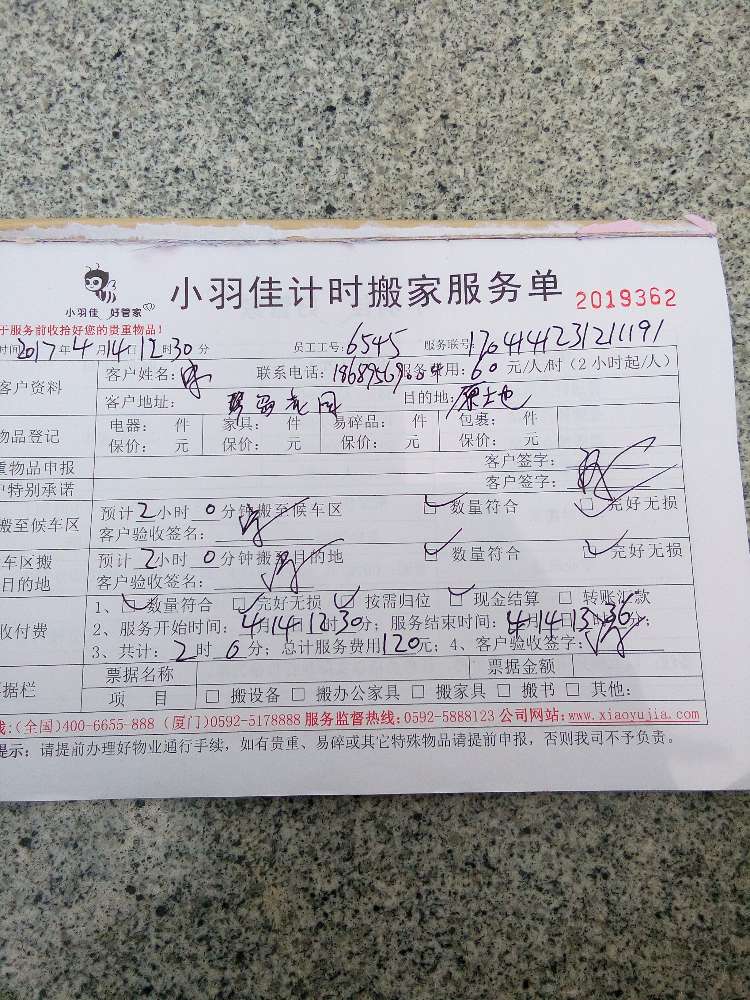 小羽佳 好管家
小羽佳计时搬家服务单 2019362
于服务前收拾好您的贵重物品!
时间2017年4月14日12时30分 员工工号:6545 服务联号:1704141231211191
客户资料 客户姓名: 联系电话: 服务费用:60元/人/时(2小时起/人)
客户地址: 花园 目的地:原土地
物品登记 电器: 件 家具: 件 易碎品: 件 包裹: 件
保价: 元 保价: 元 保价: 元 保价: 元
重物品申报 客户签字:
户特别承诺 客户签字:
搬至候车区 预计2小时0分钟搬至候车区 数量符合 完好无损
客户验收签名:
车区搬 预计2小时0分钟搬至目的地 数量符合 完好无损
目的地 客户验收签名:
1、数量符合 完好无损 按需归位 现金结算 转账汇款
收付费 2、服务开始时间:4月14日12时30分;服务结束时间:4月14日13时36分;
3、共计:2时0分;总计服务费用120元;4、客户验收签字:
据栏 票据名称 票据金额
项 目 搬设备 搬办公家具 搬家具 搬书 其他:
线:(全国)400-6655-888 (厦门)0592-5178888 服务监督热线:0592-5888123 公司网站:www.xiaoyujia.com
提示:请提前办理好物业通行手续,如有贵重、易碎或其它特殊物品请提前申报,否则我司不予负责。